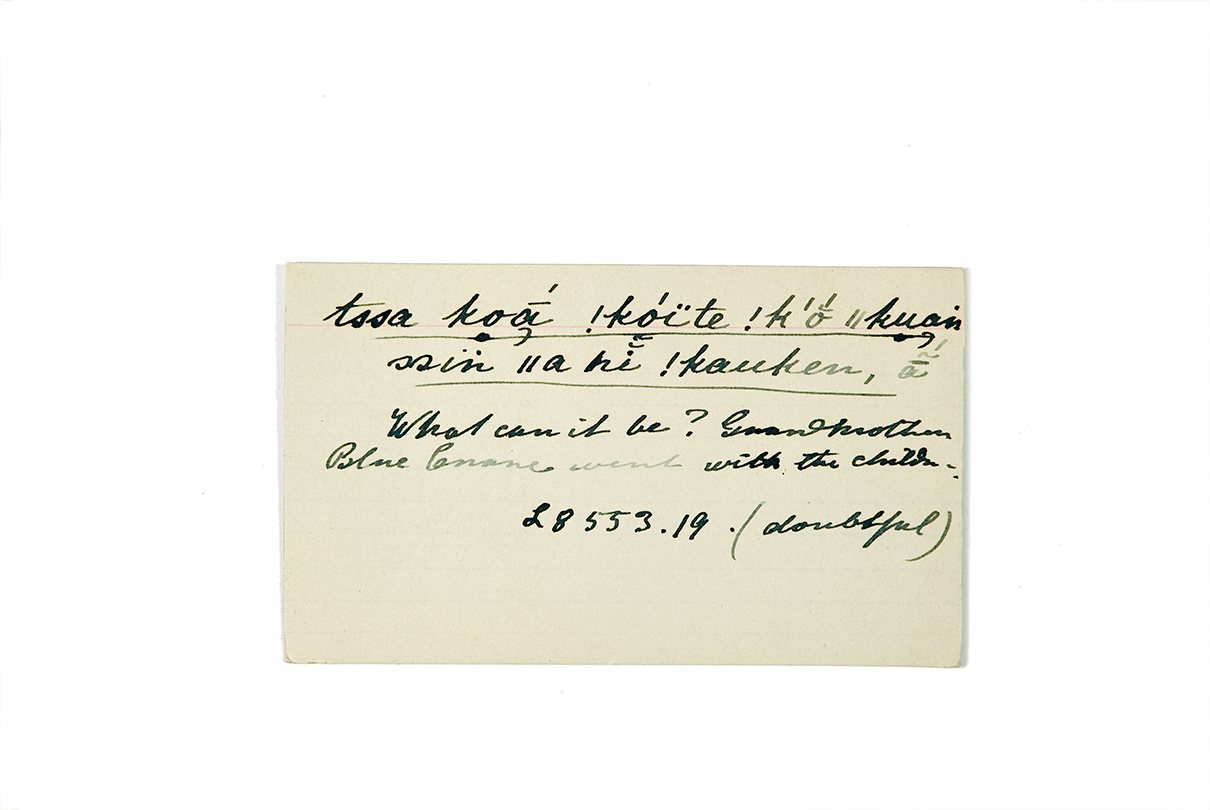 tssa koā́ !kóïte !k'ő ǁkuaṅ
ssiṅ ǁa hĭ̃ !kauken, ā̃́
What can it be? Grandmother
Blue Crane went with the childn.
L8 553.19. (doubtful)